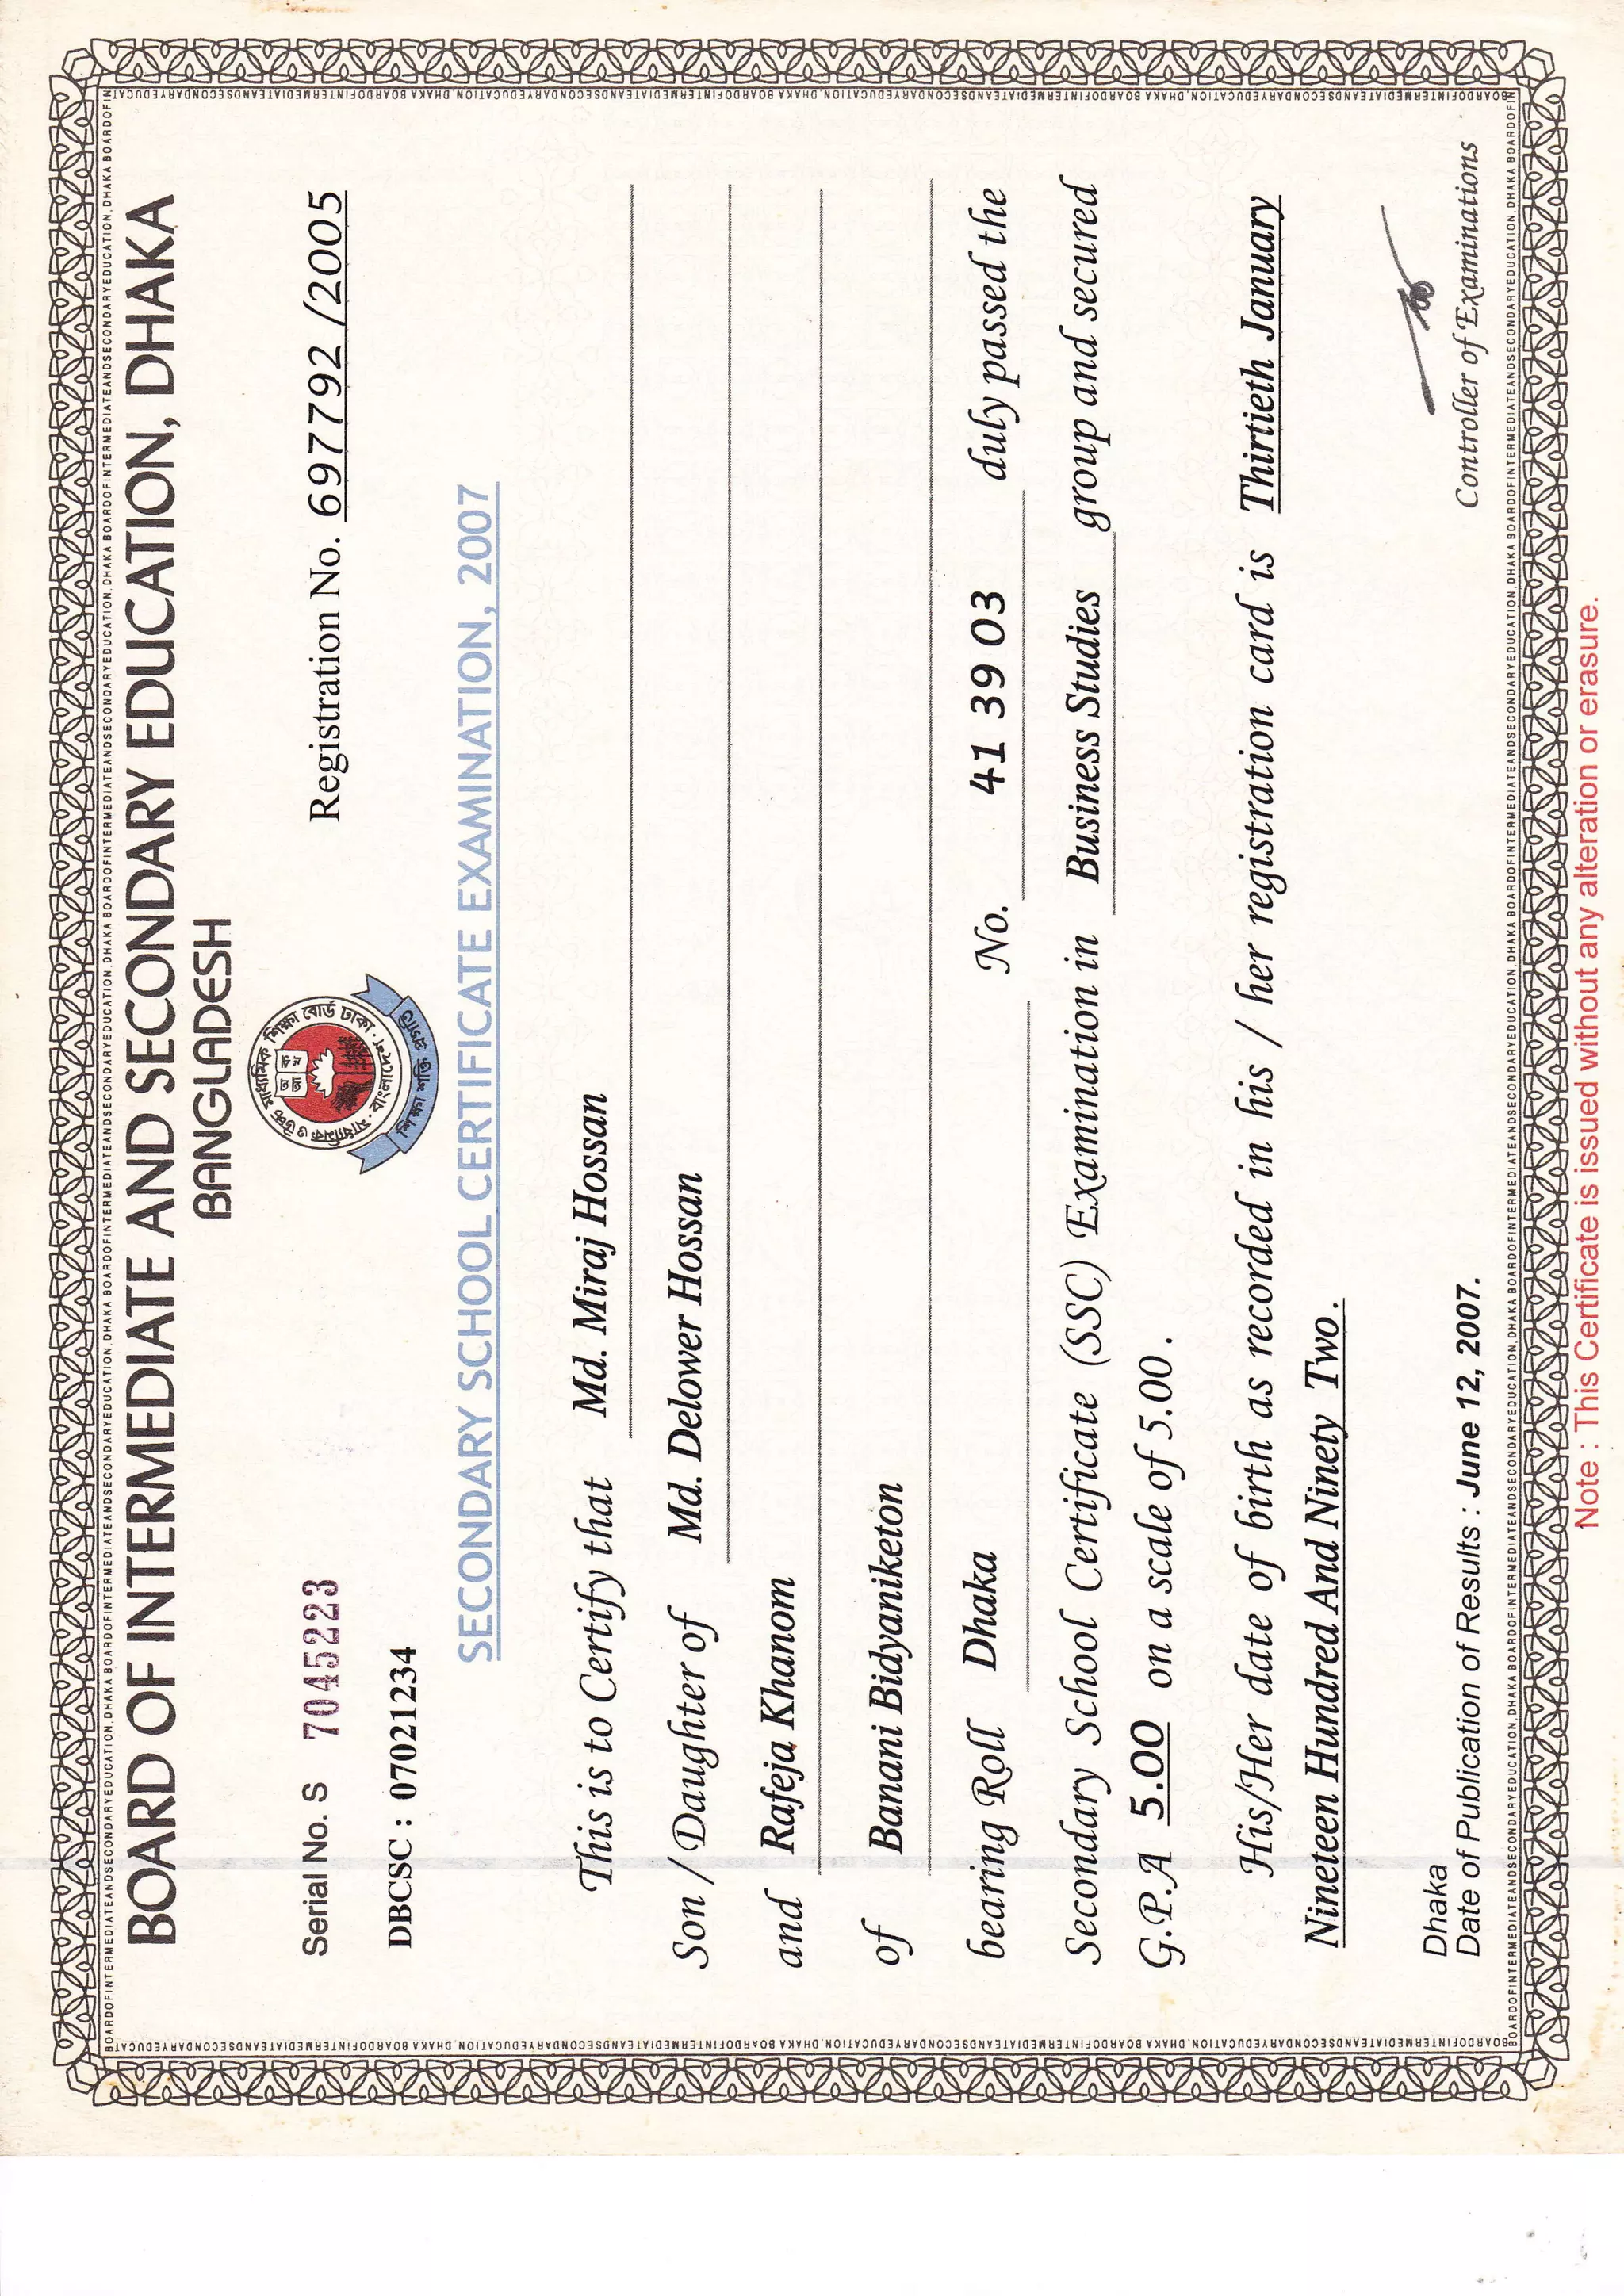 BOARD OF INTERMEDIATE AND SECONDARY EDUCATION, DHAKA
BANGLADESH
Serial No. S 7045223
Registration No. 697792 /2005
DBCSC : 07021234
মাধ্যমিক ও উচ্চ মাধ্যমিক শিক্ষা বোর্ড ঢাকা
বাংলাদেশ
SECONDARY SCHOOL CERTIFICATE EXAMINATION, 2007
This is to Certify that Md. Miraj Hossan
Son / Daughter of Md. Delower Hossan
and Rafeja Khanom
of Banani Bidyaniketon
bearing Roll Dhaka No. 41 39 03 duly passed the
Secondary School Certificate (SSC) Examination in Business Studies group and secured
G.P.A 5.00 on a scale of 5.00 .
His/Her date of birth as recorded in his / her registration card is Thirtieth January
Nineteen Hundred And Ninety Two.
Dhaka
Date of Publication of Results : June 12, 2007.
Controller of Examinations
Note : This Certificate is issued without any alteration or erasure.